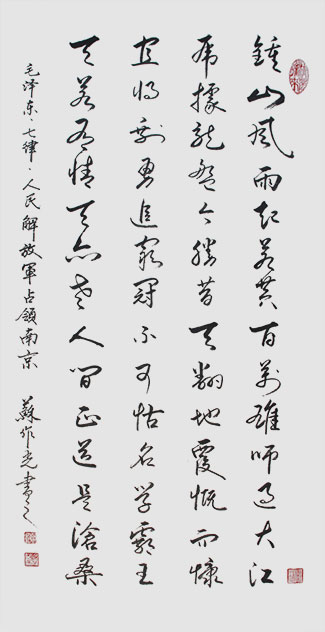 鍾山風雨起蒼黄百萬雄師过大江
虎據龍盤今勝昔天翻地覆慨而慷
宜将剩勇追窮寇不可沽名学霸王
天若有情天亦老人间正道是滄桑
毛泽东·七律·人民解放軍占領南京 蘇作光書之